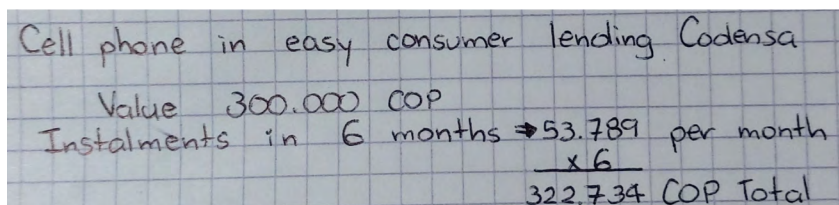 Cell phone in easy consumer lending Codensa
Value 300.000 COP
Instalments in 6 months → 53.789 per month
x 6
322.734 COP Total